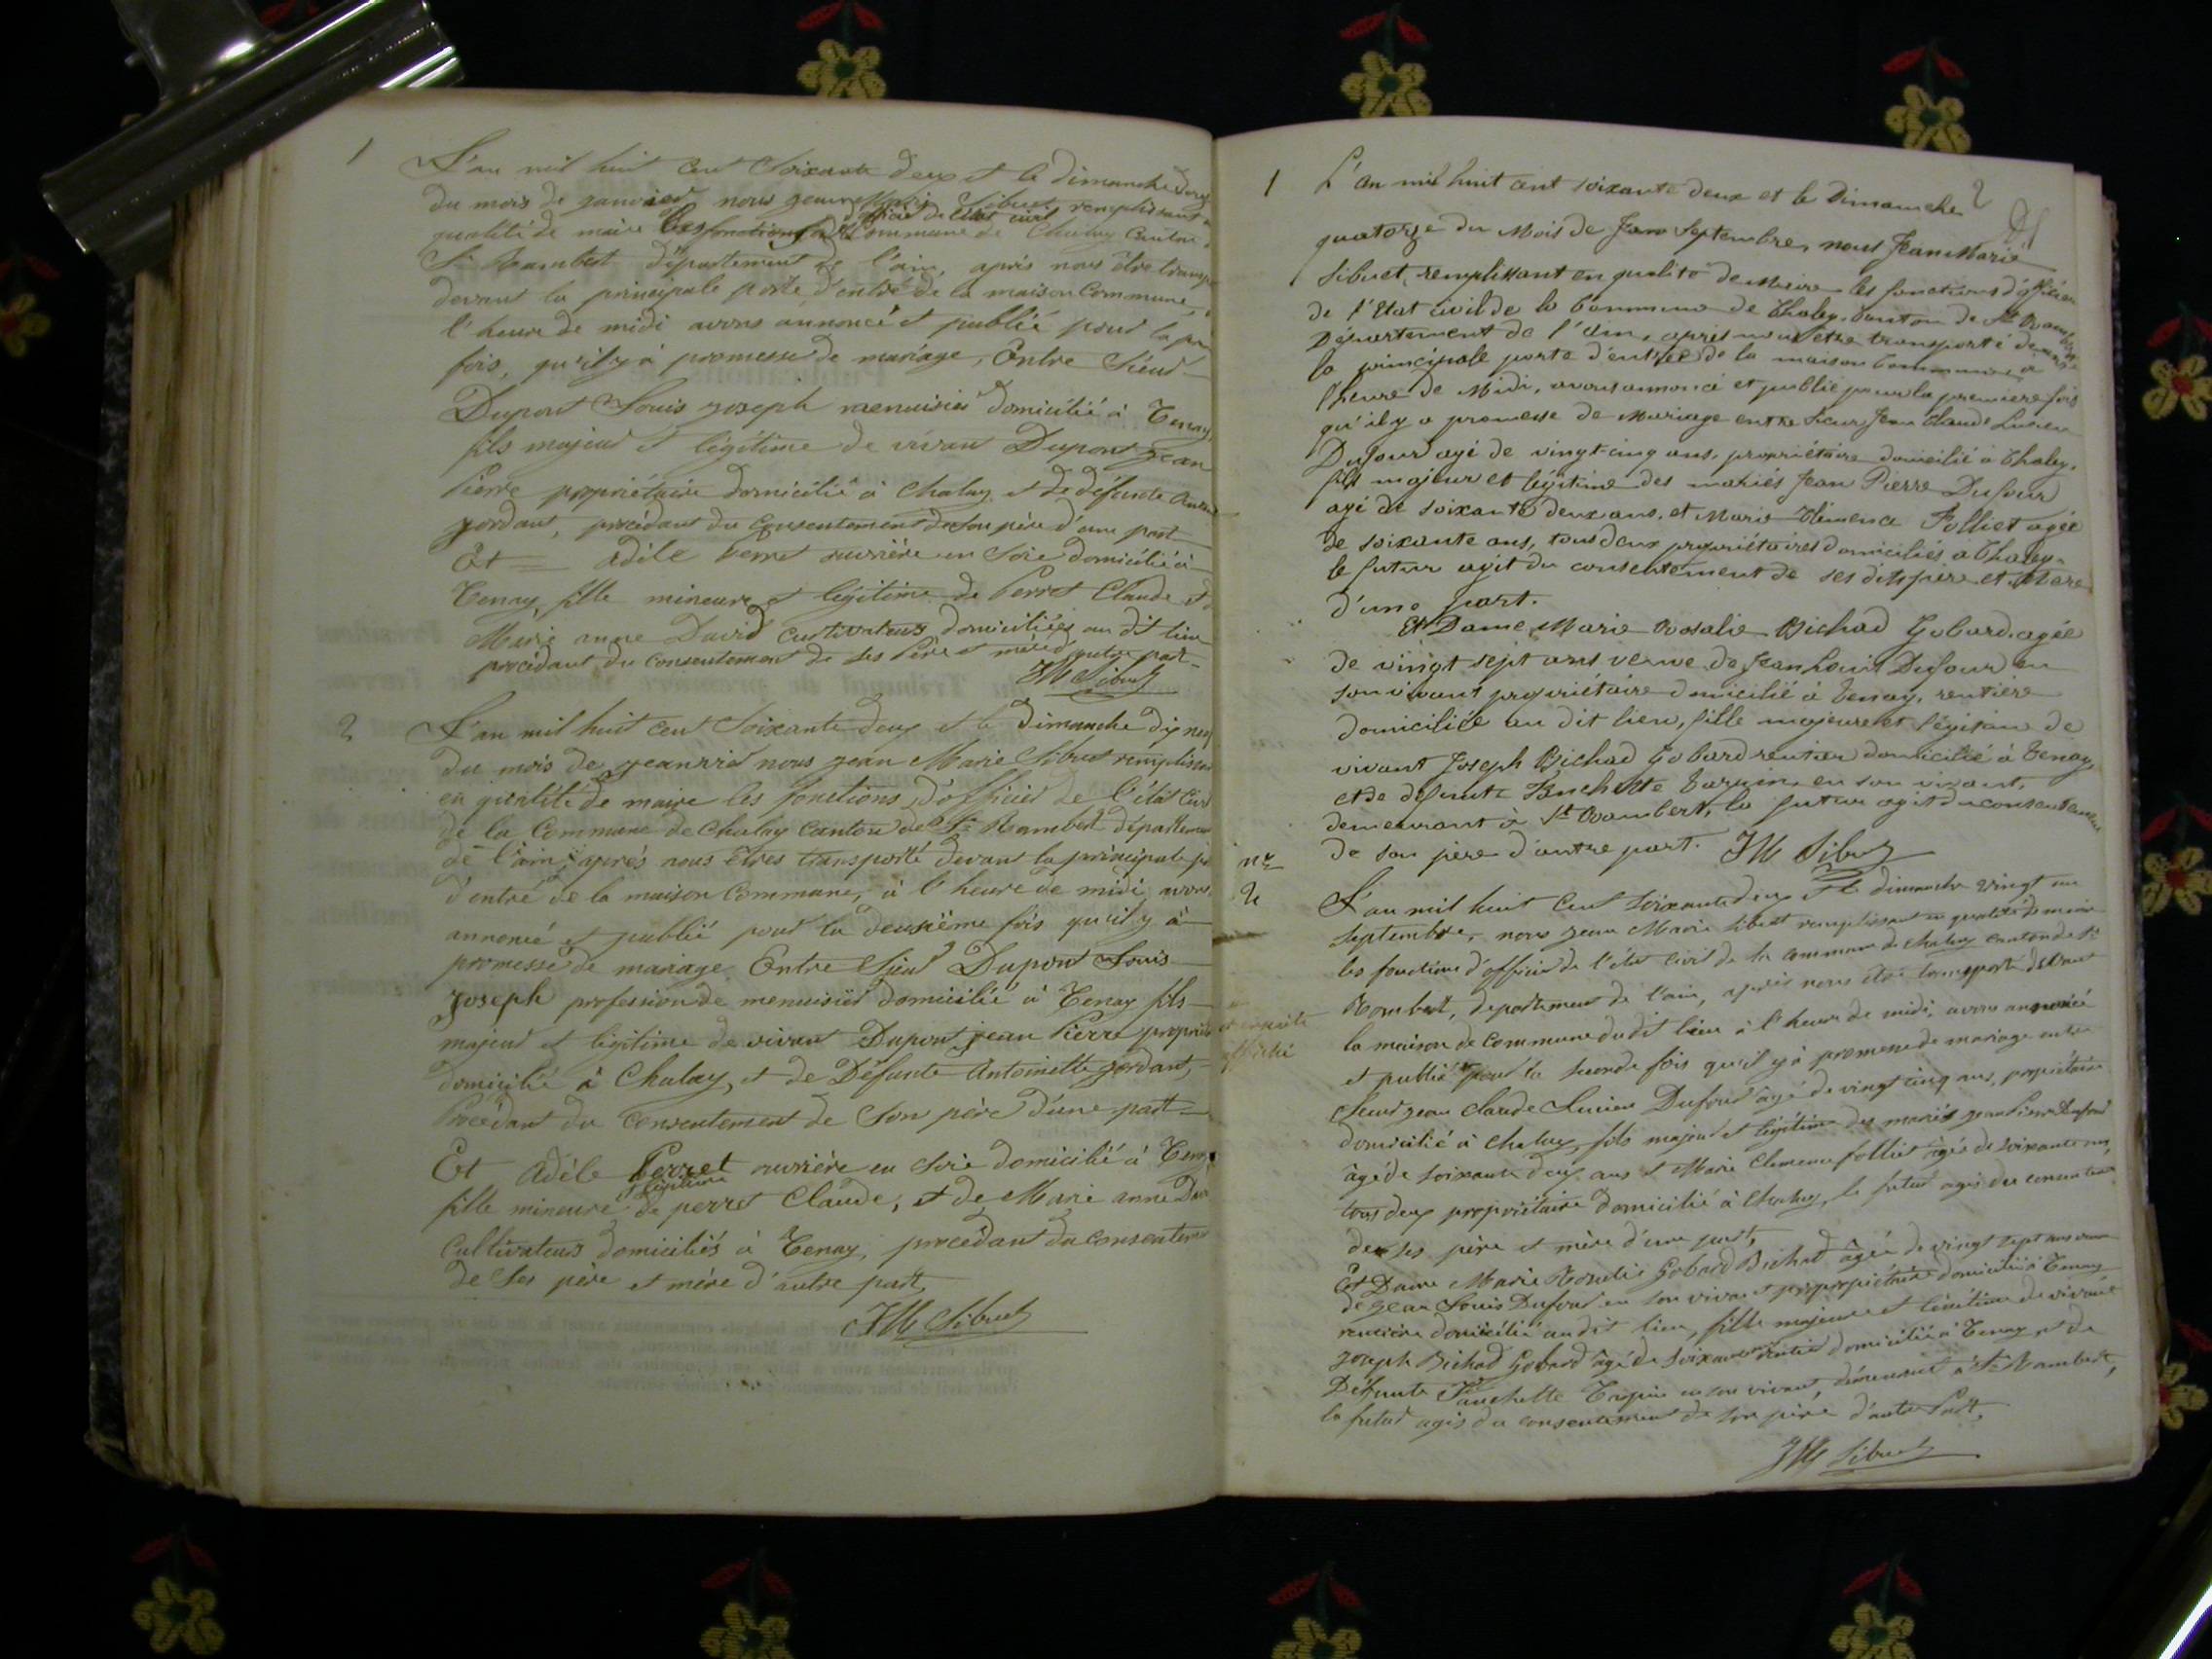 1
L'an mil huit cent Soixante deux et le dimanche douze
du mois de janvier, nous jean Marie Sibuet remplissant en
qualité de maire les fonctions d'officier de l'état civil de la Commune de Chaley Canton
St Rambert département de l'ain, après nous être transporté
devant la principale porte d'entré de la maison Commune,
l'heure de midi avons annoncé et publié pour la
fois, qu'il y à promesse de mariage, Entre Sieur
Dupont Louis joseph menuisier domicilié à Tenay,
fils majeur et légitime de vivant Dupont jean
Pierre propriétaire domicilié à Chaley et de défunte
jordant, procédant du Consentement de son père d'une part
Et = Adèle Perret ouvrière en Soie domicilié à
Tenay, fille mineure et légitime de Perret Claude et
Marie anne David Cultivateurs domiciliés au dit lieu
procédant du Consentement de ses Père et mère d'autre part
JM Sibuet
2
L'an mil huit cent Soixante deux et le dimanche dix neuf
du mois de jeanvier nous jean Marie Sibuet remplissant
en qualité de maire les fonctions d'officier de l'état civil
de la Commune de Chaley Canton de St Rambert département
de l'ain, après nous êtres transporté devant la principale
d'entré de la maison Commune, à l'heure de midi avons
annoncé et publié pour la deusième fois qu'il y à
promesse de mariage Entre Sieur Dupont Louis
joseph profession de menuisier domicilié à Tenay fils
majeur et légitime de vivant Dupont jean Pierre
domicilié à Chaley, et de Défunte Antoinette jordant,
Procédant du Consentement de Son père d'une part
Et Adèle Perret ouvrière en Soie domicilié à Tenay
fille mineure et légitime de perret Claude, et de Marie anne
Cultivateurs domiciliés à Tenay, procédant du Consentement
de Ses père et mère d'autre part,
JM Sibuet
1
L'an mil huit cent soixante deux et le Dimanche
quatorze du Mois de Septembre, nous Jean Marie
Sibuet, remplissant en qualité de Maire les fonctions d'officier
de l'Etat civil de la Commune de Chaley, Canton de St Rambert
Département de l'ain, après nous être transporté devant
la principale porte d'entrée de la maison Commune, à
l'heure de Midi, avons annoncé et publié pour la premiere fois
qu'il y a promesse de Mariage entre Sieur Jean Claude Lucien
Dufour agé de vingt-cinq ans, propriétaire domicilié à Chaley,
fils majeur et légitime des mariés Jean Pierre Dufour
agé de soixante deux ans, et Marie Clémence Folliet agée
de soixante ans, tous deux propriétaires domiciliés a Chaley.
le futur agit du consentement de ses dits père et Mère
d'une part.
Et Dame Marie Rosalie Bichad Gobard, agée
de vingt sept ans veuve de Jean Louis Dufour en
son vivant propriétaire domicilié à Tenay, rentière
domiciliée au dit lieu, fille majeure et légitime de
vivant Joseph Bichad Gobard rentier domicilié à Tenay,
et de defunte Fanchette en son vivant,
demeurant à St Rambert, la future agit du consentement
de son père d'autre part. JM Sibuet
2
L'an mil huit Cent Soixante deux et le dimanche vingt un
Septembre, nous jean Marie Sibuet remplissant en qualité de maire
les fonctions d'officier de l'état civil de la commune de Chaley canton de St
Rambert, département de l'ain, après nous être transporté devant
la maison de Commune du dit lieu à l'heure de midi, avons annoncé
et publié pour la seconde fois qu'il y à promesse de mariage entre
Sieur jean Claude Lucien Dufour âgé de vingt cinq ans, propriétaire
domicilié à Chaley, fils majeur et légitime des mariés jean Pierre Dufour
âgé de soixante deux ans et Marie Clemence folliet âgée de soixante ans,
tous deux propriétaire domicilié à Chaley, le futur agis du consentement
de ses père et mère d'une part,
Et Dame Marie Rosalie Gobard Bichad âgée de vingt sept ans veuve
de jean Louis Dufour en son vivant propriétaire domicilié à Tenay
rentière domicilié au dit lieu, fille majeure et légitime de vivant
joseph Bichad Gobard âgé de soixante rentier domicilié à Tenay et de
Défunte Fanchette en son vivant, demeurant à St Rambert,
la futur agis du consentement de son père d'autre Part,
JM Sibuet